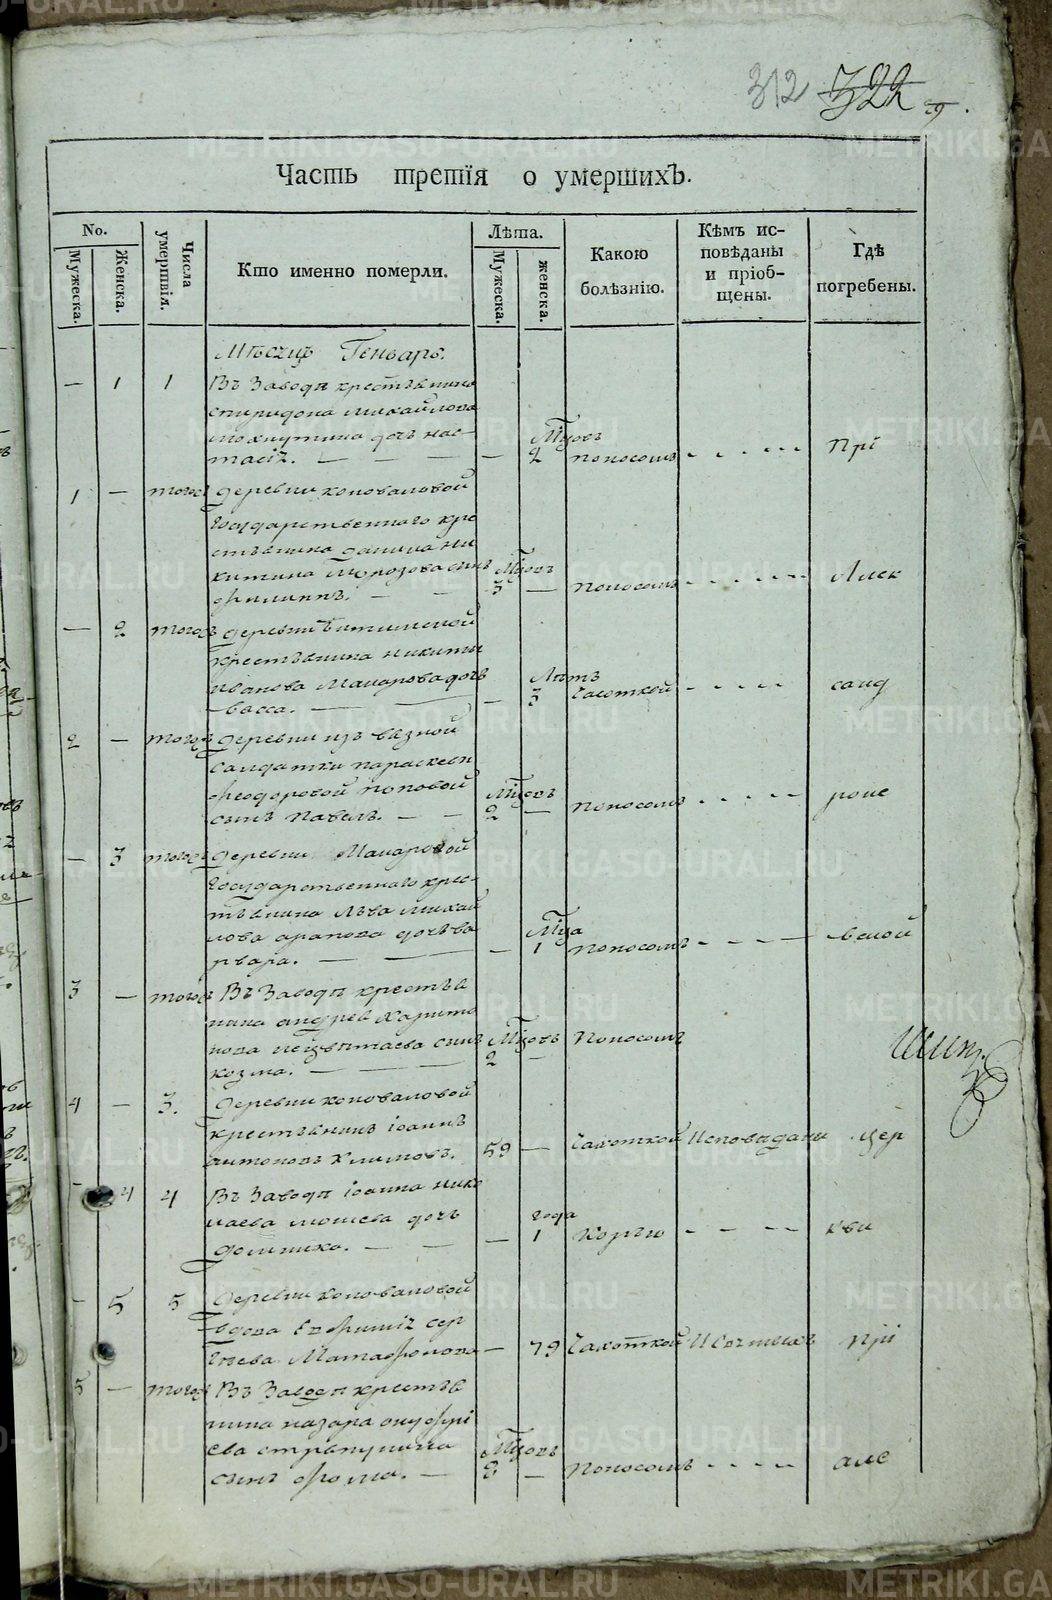 312 322
Часть третія о умершихЪ.
No.
Мужеска.
Женска.
Числа умертвія.
Кто именно померли.
Лѣта.
Мужеска.
женска.
Какою болѣзнію.
Кѣмъ исповѣданы и пріобщены.
Гдѣ погребены.
Мѣсяцъ Генварь.
— 1 1 Въ Заводѣ крестьянина
спиридона михайлова
дочь нас-
тасія. — — — — Мцовъ 2 поносомъ При
1 — тогож деревни коноваловой
государственного кре
стьянина данила ни
китина Морозова сынъ Мцовъ
филиппъ. — — 3 — поносомъ Алек
— 2 тогож деревни
крестьянина никиты
иванова Макарова дочь Лѣтъ
васса. — — — 3 Чахоткой санд
2 — тогож деревни
салдатки параскевы
феодоровой поповой Мцовъ
сынъ павелъ. — — 2 — поносомъ рове
— 3 тогож деревни Макаровой
государственного крес-
тьянина льва михай
лова арапова дочь ва Мца
рвара. — — — 1 поносомъ вской
3 — тогож Въ Заводѣ крестья
нина андрея Харито
нова сынъ Мцовъ Поносомъ
козма. — — — 2 —
4 — 3. Деревни коноваловой
крестьянинъ іоаннъ
антоновъ Климовъ. 59 — Чахоткой Исповѣданы цер
4 4 Въ Заводѣ іоанна нико
лаева дочь года
домника. — — — 1 Корью кви
— 5 5 Деревни коноваловой
вдова Евфимія сер
гѣева — 79 Чахоткой При
5 — тогож Въ Заводѣ крестья
нина назара онуфрі
ева Мцовъ
сынъ фома. — 2 — Поносомъ але
METRIKI.GASO-URAL.RU